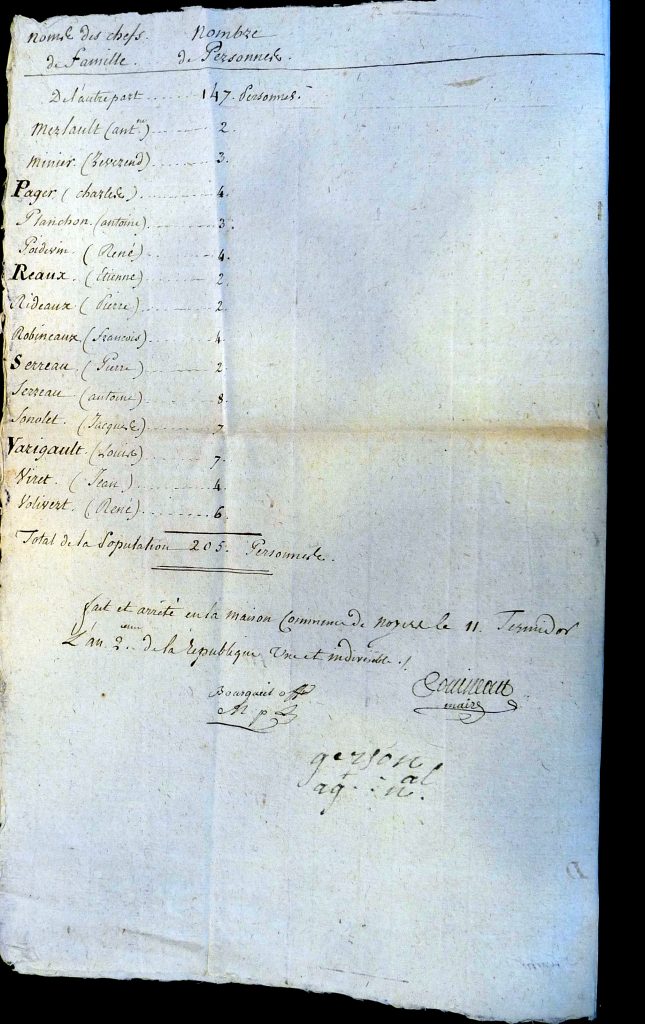 noms des chefs Nombre
de Famille. de Personnes.
De l'autre part ........ 147. Personnes.
Merlault (ant.ne) ........ 2.
Minier (Reverend) ........ 3.
Pager (charles) ........ 4.
Planchon (antoine) ........ 3.
Poidevin (René) ........ 4.
Reaux (Etienne) ........ 2.
Rideaux (Pierre) ........ 2.
Robineaux (François) ........ 4.
Serreau (Pierre) ........ 2
Serreau (antoine) ........ 8
Sonolet (Jacques) ........ 7
Varigault (Louis) ........ 7.
Viret (Jean) ........ 4
Volivert (René) ........ 6.
Total de la Population 205. Personnes.
fait et arrêté en la maison Commune de noyers le 11. Termidor
L'an 2.eme de la republique Une et indivisible ./.
Bourgueil off
maire
gerson
ag.t nal.